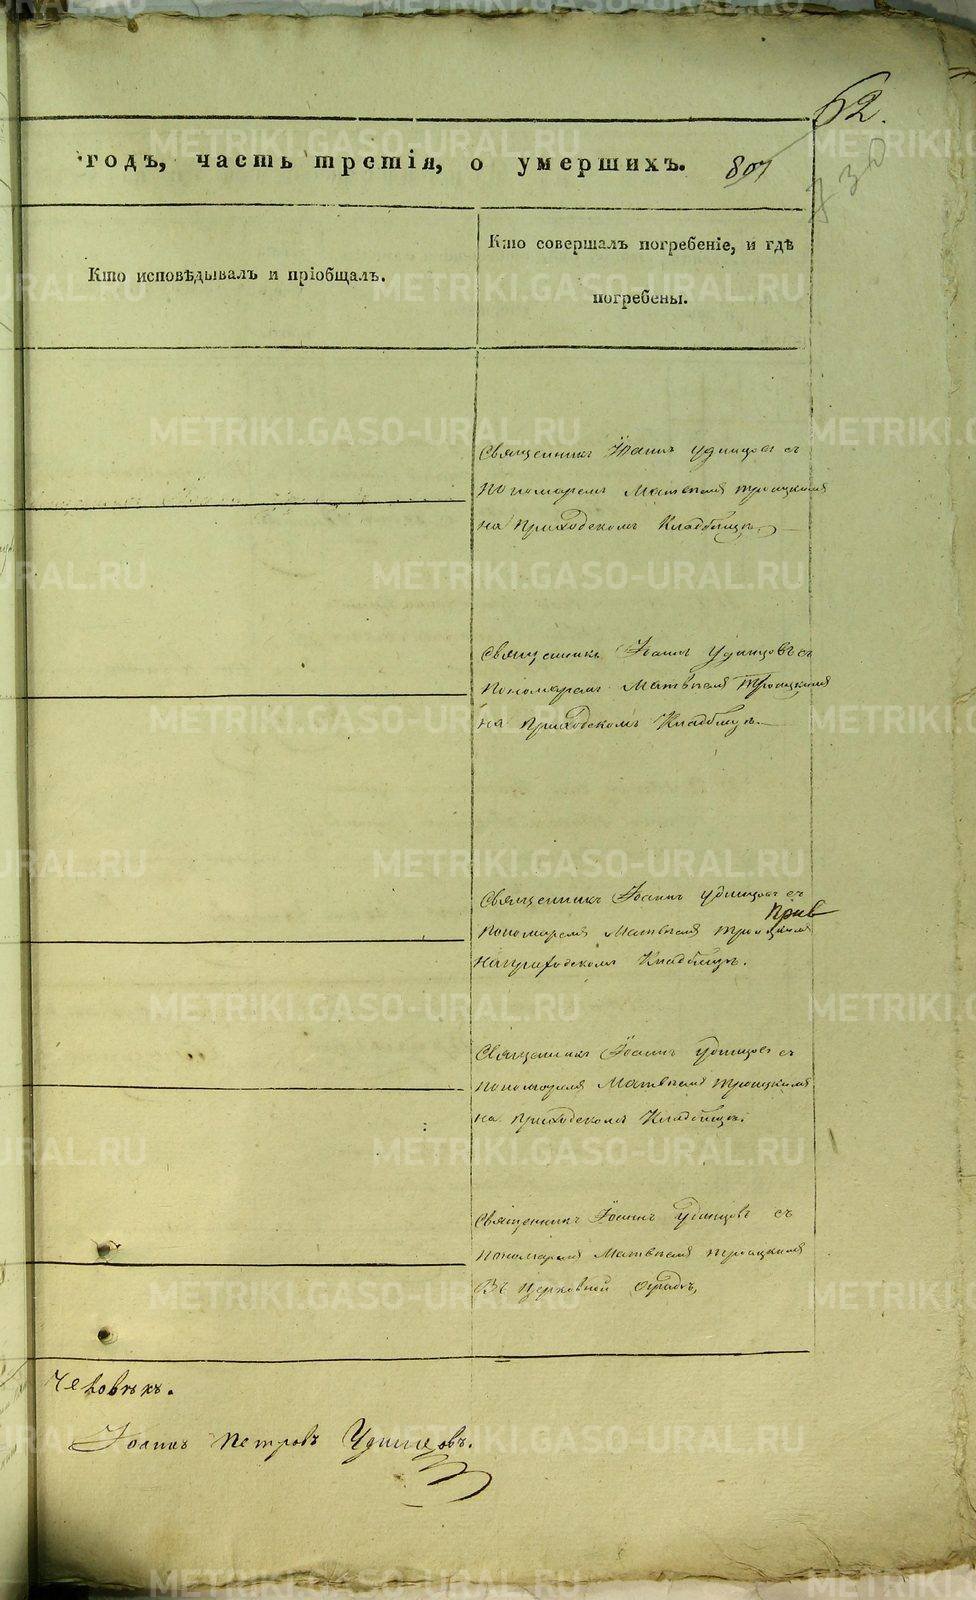 62.
годъ, часть третія, о умершихъ. 807
730
Кто исповѣдывалъ и пріобщалъ.
Кто совершалъ погребеніе, и гдѣ
погребены.
Священникъ Іоаннъ Удинцовъ съ
пономаремъ Матвѣемъ Троицкимъ
на Приходскомъ Кладбищѣ
Священникъ Іоаннъ Удинцовъ съ
Пономаремъ Матвѣемъ Троицкимъ
на Приходскомъ Кладбищѣ.
Священникъ Іоаннъ Удинцовъ съ
Пономаремъ Матвѣемъ Троицкимъ
на приходскомъ Кладбищѣ.
Священникъ Іоаннъ Удинцовъ съ
пономаремъ Матвѣемъ Троицкимъ
на Приходскомъ Кладбищѣ.
Священникъ Іоаннъ Удинцовъ съ
Пономаремъ Матвѣемъ Троицкимъ
Въ Церковной оградѣ,
Человѣкъ.
Іоаннъ Петровъ Удинцовъ.
METRIKI.GASO-URAL.RU